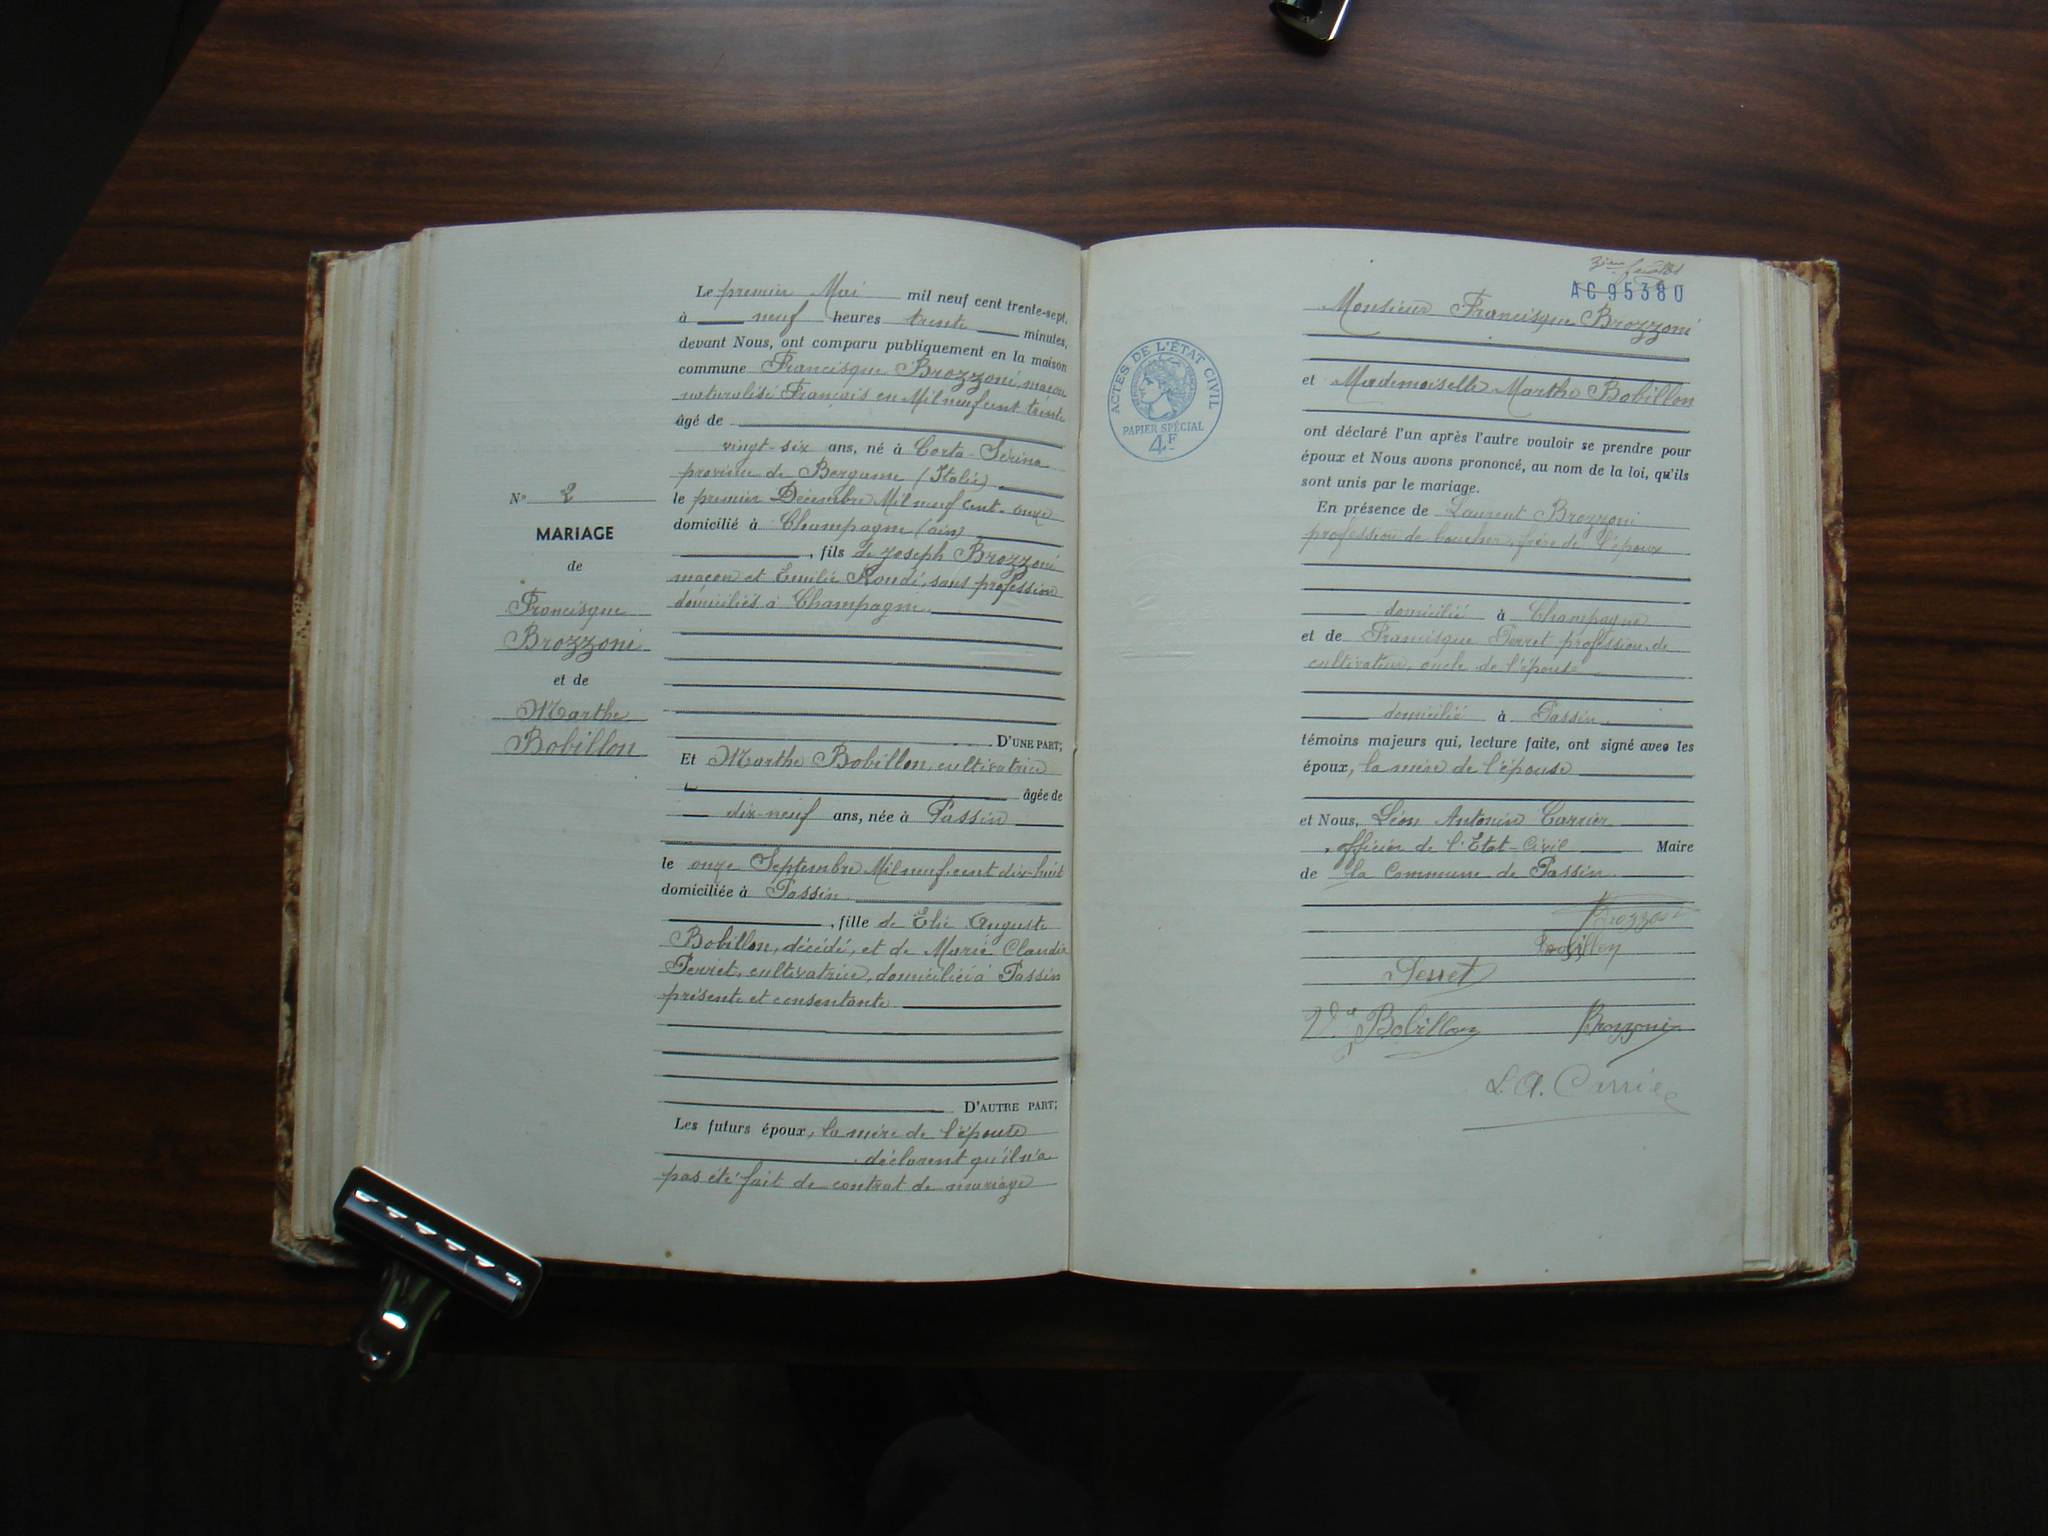 Le premier Mai mil neuf cent trente-sept,
à neuf heures trente minutes,
devant Nous, ont comparu publiquement en la maison
commune Francisque Brozzoni, maçon
naturalisé Français en Mil neuf cent trente
âgé de
vingt-six ans, né à Corta-Serina
province de Bergame (Italie)
le premier Décembre Mil neuf cent-onze
domicilié à Champagne (ain)
, fils de Joseph Brozzoni
maçon et Emilie Roudi, sans profession
domiciliés à Champagne.
D'UNE PART;
Et Marthe Bobillon, cultivatrice
âgée de
dix-neuf ans, née à Passin
le onze Septembre Mil neuf cent dix-huit
domiciliée à Passin
, fille de Elie Auguste
Bobillon, décédé, et de Marie Claudia
Perret, cultivatrice, domiciliée à Passin
présente et consentante
D'AUTRE PART;
Les futurs époux, la mère de l'épouse
déclarent qu'il n'a
pas été fait de contrat de mariage
N° 2
MARIAGE
de
Francisque
Brozzoni
et de
Marthe
Bobillon
ACTES DE L'ÉTAT CIVIL
PAPIER SPÉCIAL
4F
AC 95380
Monsieur Francisque Brozzoni
et Mademoiselle Marthe Bobillon
ont déclaré l'un après l'autre vouloir se prendre pour
époux et Nous avons prononcé, au nom de la loi, qu'ils
sont unis par le mariage.
En présence de Laurent Brozzoni
profession de boucher, frère de l'époux
domicilié à Champagne
et de Francisque Perret profession de
cultivateur, oncle de l'épouse
domicilié à Passin.
témoins majeurs qui, lecture faite, ont signé avec les
époux, la mère de l'épouse
et Nous, Léon Antonin Carrier
, officier de l'Etat-Civil Maire
de la Commune de Passin.
Brozzoni
Bobillon
Perret
Vve Bobillon Brozzoni
L.A. Carrier